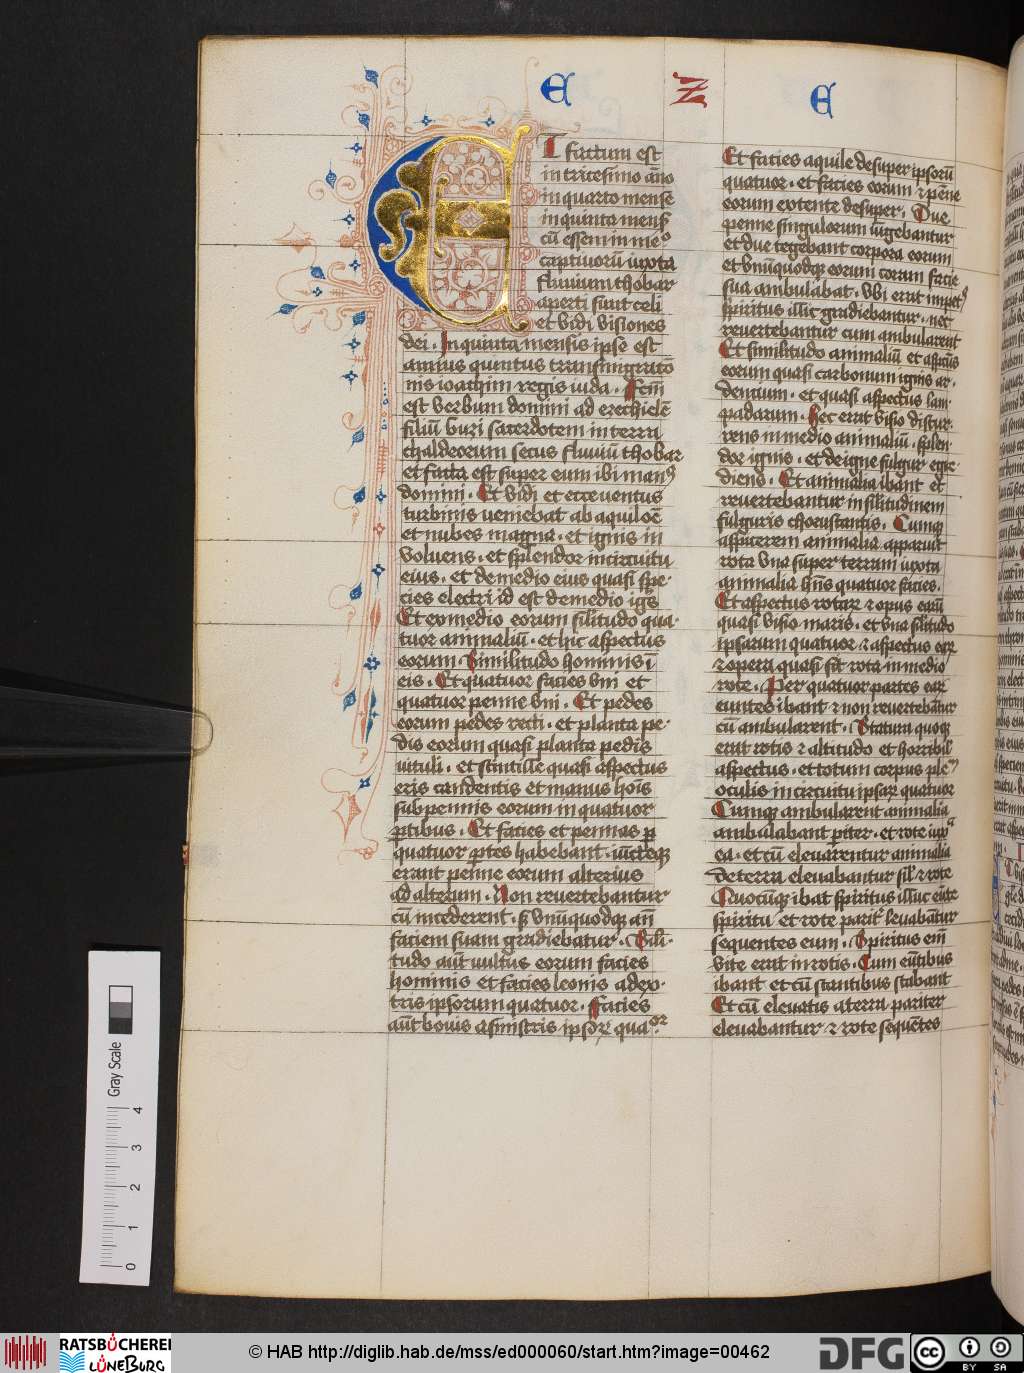 E Z E
ET factum est
in tricesimo año
in quarto mense
in quinta mens̃
cũ essem in me⁹
captiuorũ iuxta
fluuium chobar
aperti sunt celi
et vidi visiones
dei . In quinta mensis ipse est
annus quintus transmigratõ
nis ioachim regis iuda . Fcm̃
est verbum domini ad ezechielẽ
filiũ buzi sacerdotem in terra
chaldeorum secus fluuiũ chobar
et facta est super eum ibi man⁹
domini . Et vidi et ecce ventus
turbinis veniebat ab aquilõe
et nubes magna . et ignis in
voluens . et splendor in circuitu
eius . et de medio eius quasi spe
cies electri id est de medio ig̃s
Et ex medio eorum silitudo qua
tuor animaliũ . et hic aspectus
eorum . Similitudo hominis ĩ
eis . Et quatuor facies vni et
quatuor penne vni . Et pedes
eorum pedes recti . et planta pe
dis eorum quasi planta pedis
vituli . et scintille quasi aspectus
eris candentis et manus hoĩs
sub pennis eorum in quatuor
ꝑtibus . Et facies et pennas ꝑ
quatuor ꝑtes habebant . iuncteqꝫ
erant penne eorum alterius
ad alterum . Non reuertebantur
cũ incederent . sꝫ vnũquodqꝫ añ
faciem suam gradiebatur . Sili
tudo aũt vultus eorum facies
hominis et facies leonis a dex
tris ipsorum quatuor . Facies
aũt bouis a sinistris ipsoꝝ quaᵒʳ
Et facies aquile desuper ipsorũ
quatuor . et facies eorum ⁊ pẽne
eorum extente desuper . Due
penne singulorum iũgebantur
et due tegebant corpora eorum
et vnũquodqꝫ eorum coram facie
sua ambulabat . Vbi erat impet⁹
spiritus illic gradiebantur . nec
reuertebantur cum ambularent
Et similitudo animaliũ et aspcũs
eorum quasi carbonum ignis ar
dentium . et quasi aspectus lam
padarum . Hec erat visio discur
rens in medio animaliũ . splen
dor ignis . et de igne fulgur egre
diens . Et animalia ibant et
reuertebantur in silitudinem
fulguris choruscantis . Cumqꝫ
aspicerem animalia apparuit
rota vna super terram iuxta
animalia hñs quatuor facies .
Et aspectus rotaꝝ ⁊ opus earũ
quasi visio maris . et vna silitudo
ipsarum quatuor ⁊ aspectus eaꝝ
⁊ opera quasi sit rota in medio
rote . Per quatuor partes eaꝝ
euntes ibant ⁊ non reuertebãtur
cũ ambularent . Statura quoqꝫ
erat rotis ⁊ altitudo et horribil̃
aspectus . et totum corpus ple⁹
oculis in circuitu ipsaꝝ quatuor
Cumqꝫ ambularent animalia
ambulabant ꝑiter . et rote iuxᵃ
ea . et cũ eleuarentur animalia
de terra eleuabantur sil̃ ⁊ rote
Quocũqꝫ ibat spiritus illuc eũte
spiritu et rote parit̃ leuabãtur
sequentes eum . Spiritus em̃
vite erat in rotis . Cum eũtibus
ibant et cũ stantibus stabant
Et cũ eleuatis a terra pariter
eleuabantur ⁊ rote sequẽtes
Gray Scale
4
3
2
1
0
RATSBÜCHEREI
LÜNEBURG
© HAB http://diglib.hab.de/mss/ed000060/start.htm?image=00462
DFG
cc
BY SA